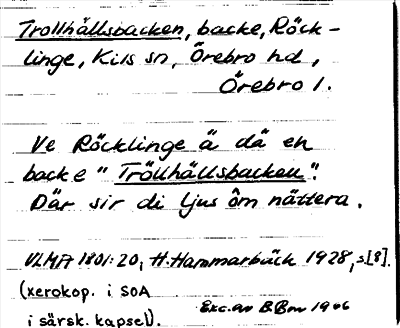 Trollhällsbacken, backe, Röck-
linge, Kils sn, Örebro hd,
Örebro l.
Ve Röcklinge ä dä en
backe "Tröllhällsbacken".
Där sir di ljus ôm nättera.
VLMA 1801:20, H. Hammarbäck 1928, s[8].
(xerokop. i SOA
i särsk. kapsel).
Exc. av B Bm